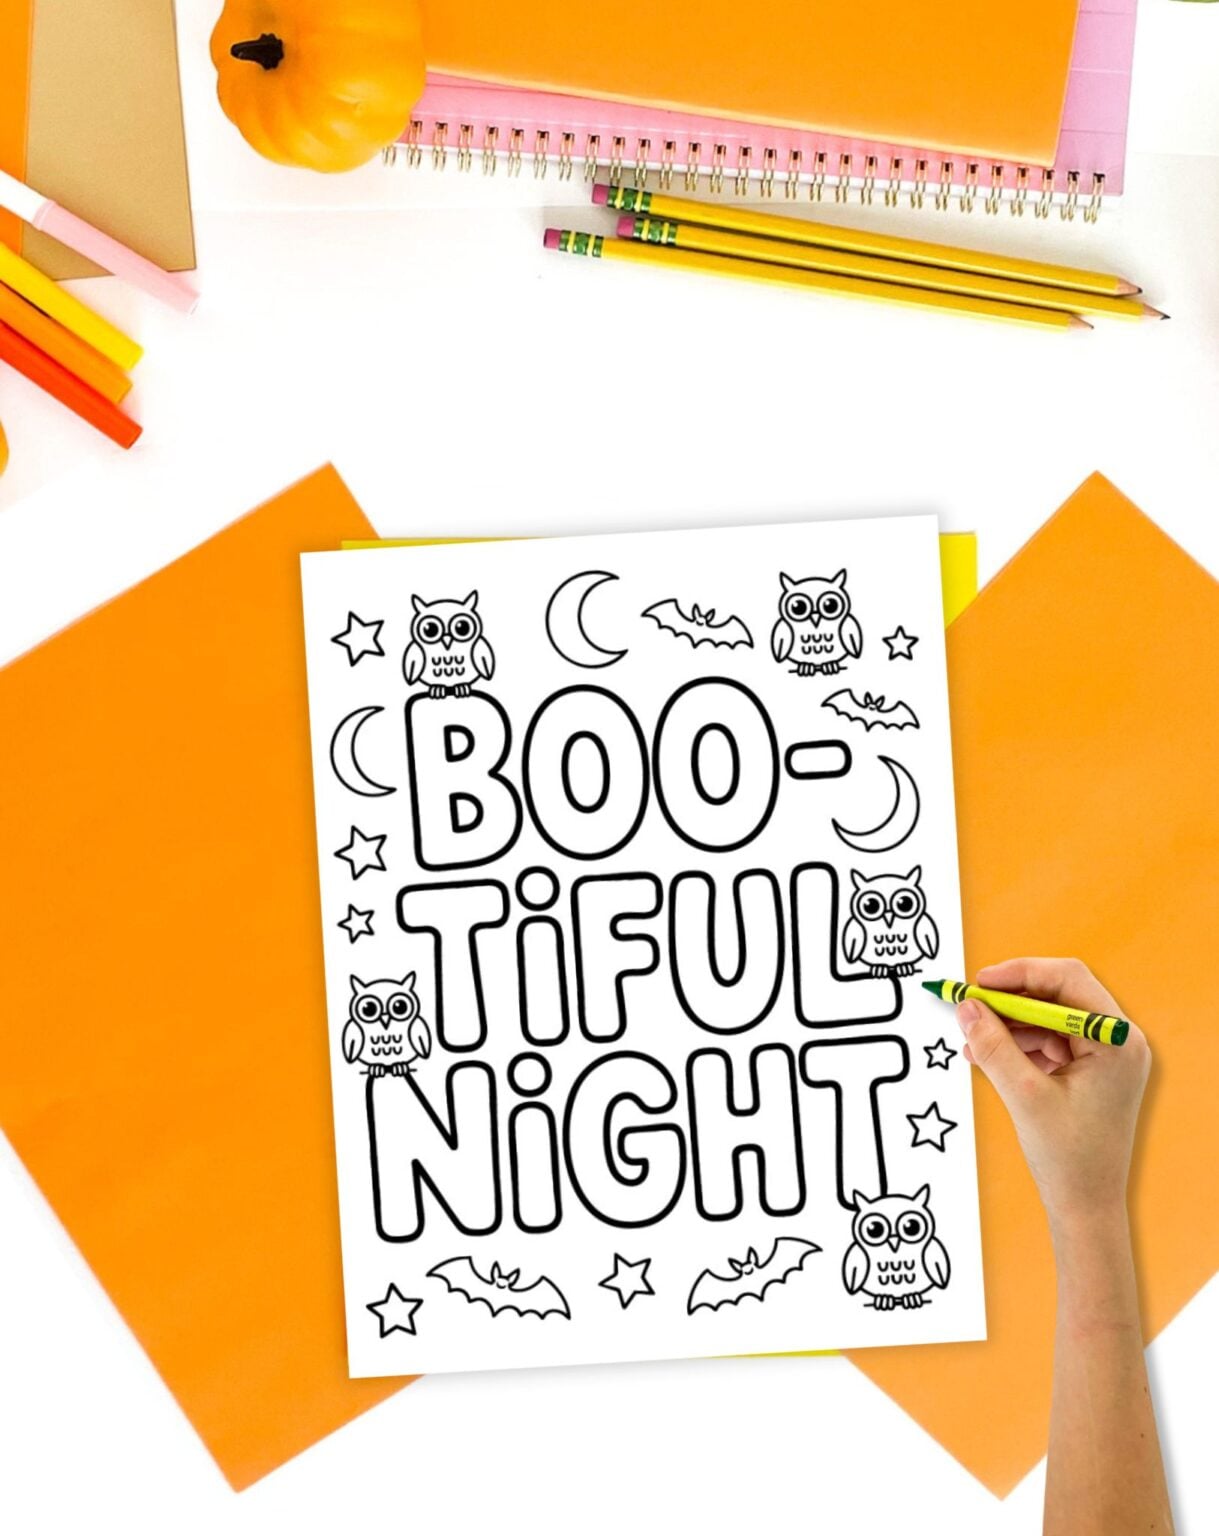 BOO-
TiFUL
NiGHT
green